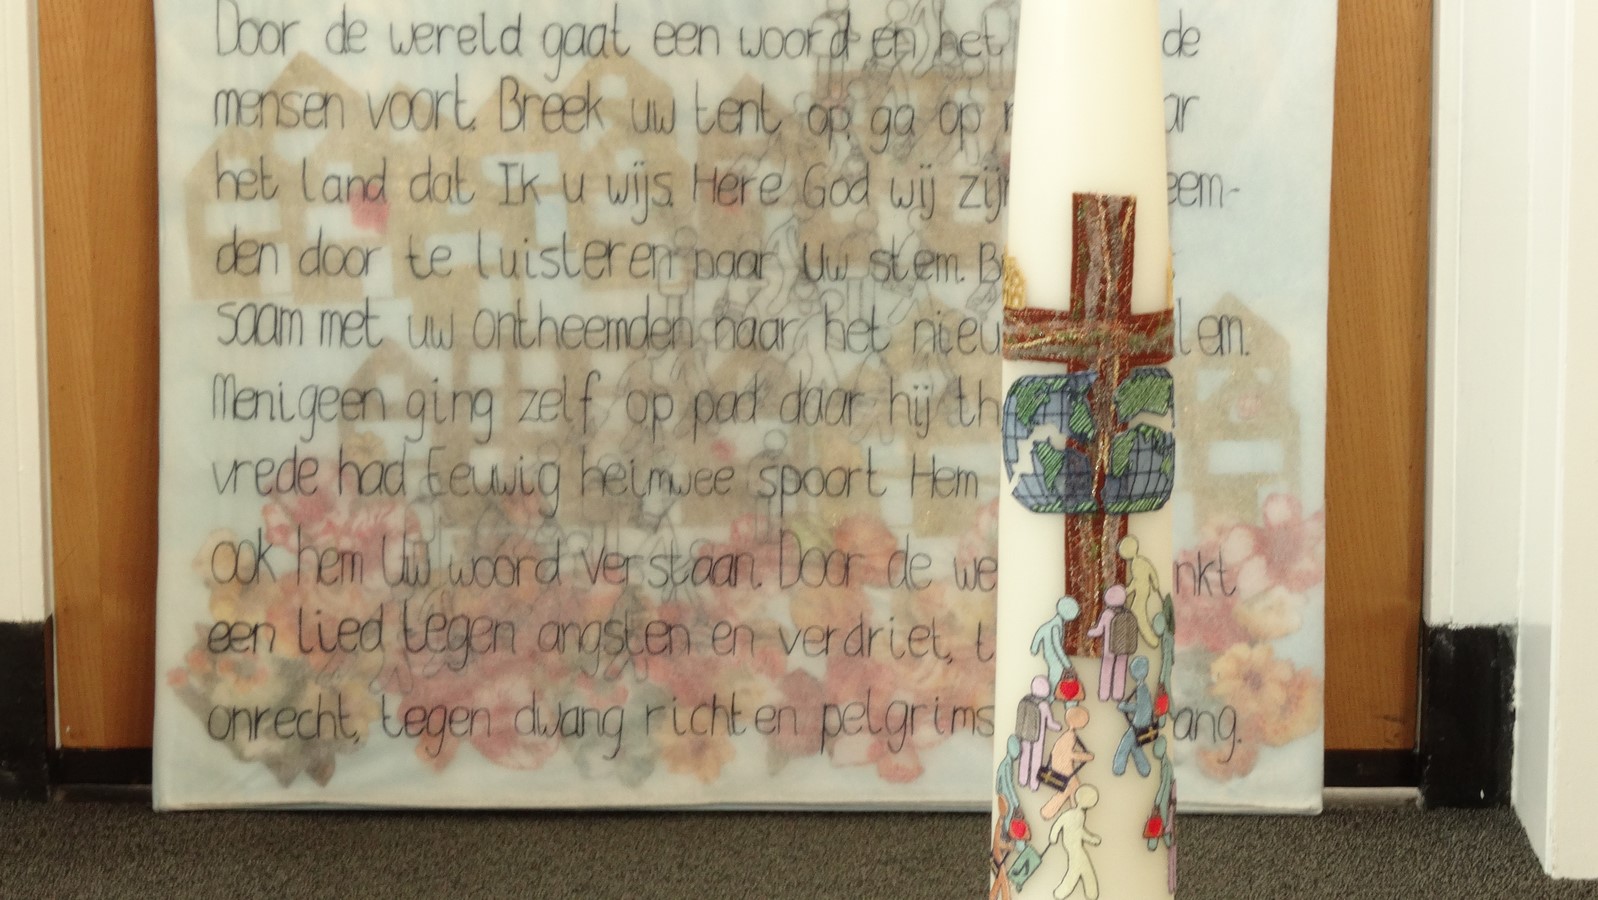 Door de wereld gaat een woord en het de
mensen voort. Breek uw tent op, ga op ar
het land dat Ik u wijs. Here God wij zijn eem-
den door te luisteren naar Uw stem.
saam met uw ontheemden naar het nieu lem.
Menigeen ging zelf op pad daar hij th
vrede had Eeuwig heimwee spoort Hem
ook hem Uw woord verstaan. Door de we nkt
een lied tegen angsten en verdriet, t
onrecht, tegen dwang richten pelgrims ang.